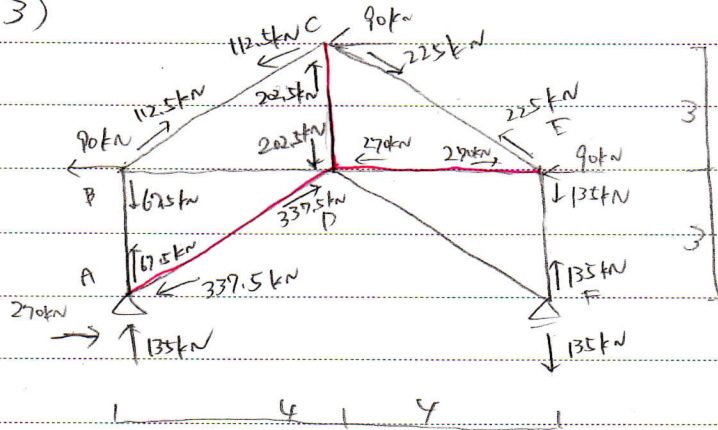 3)
C
90kN
112.5kN
225kN
202.5kN
112.5kN
225kN
E
3
90kN
202.5kN
270kN
270kN
90kN
B
67.5kN
135kN
337.5kN
D
3
67.5kN
A
337.5kN
135kN
F
270kN
135kN
135kN
4
4